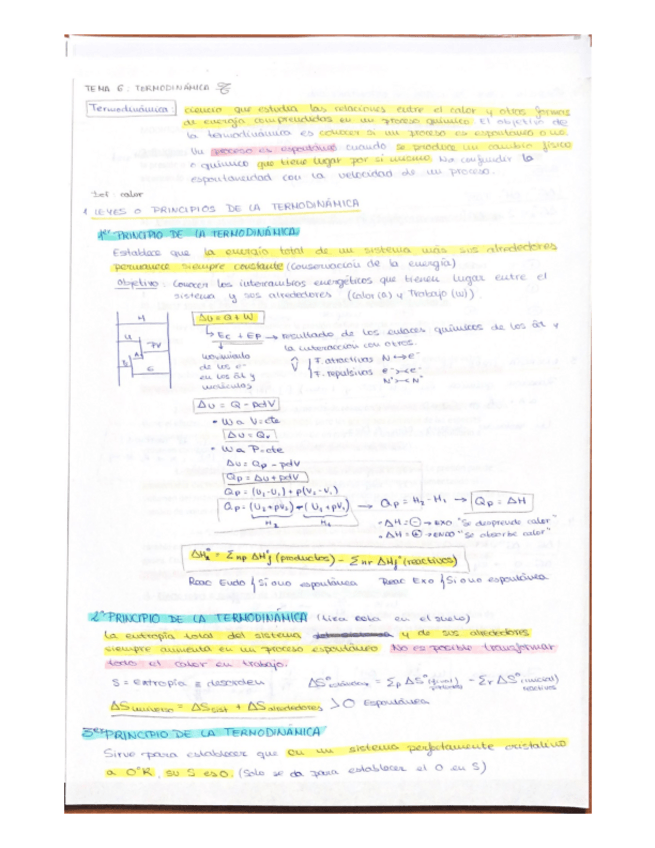 TEMA 6: TERMODINÁMICA
Termodinámica: ciencia que estudia las relaciones entre el calor y otras formas
de energía comprendidas en un proceso químico. El objetivo de
la termodinámica es conocer si un proceso es espontáneo o no.
Un proceso es espontáneo cuando se produce un cambio físico
o químico que tiene lugar por sí mismo. No confundir la
espontaneidad con la velocidad de un proceso.
calor
1 LEYES O PRINCIPIOS DE LA TERMODINÁMICA
1er PRINCIPIO DE LA TERMODINÁMICA
Establece que la energía total de un sistema más sus alrededores
permanece siempre constante (Conservación de la energía)
Objetivo: Conocer los intercambios energéticos que tienen lugar entre el
sistema y sus alrededores (Calor (Q) y Trabajo (W))
H
U
-PV
G
ΔU = Q + W
Ec + Ep → resultado de los enlaces químicos de los át y
la interacción con otros.
movimiento
de los e-
en los át y
moléculas
F. atractivas N ↔ e-
F. repulsivas e- >-< e-
N+ >-< N+
ΔU = Q - pdV
• W a V=cte
ΔU = Qv
• W a P=cte
ΔU = Qp - pdV
Qp = ΔU + pdV
Qp = (U2-U1) + p(V2-V1)
Qp = (U2+pV2) - (U1+pV1) → Qp = H2-H1 → Qp = ΔH
H2 H1
• ΔH = (-) → EXO "Se desprende calor"
• ΔH = (+) → ENDO "Se absorbe calor"
= Σ np ΔHf° (productos) - Σ nr ΔHf° (reactivos)
Reac Endo { Si o no espontánea Reac Exo { Si o no espontánea
2º PRINCIPIO DE LA TERMODINÁMICA en el suelo)
La entropía total del sistema y de sus alrededores
siempre aumenta en un proceso espontáneo. No es posible transformar
todo el calor en trabajo.
S = Entropía = desorden
= Σp ΔS° (final) - Σr ΔS° (inicial)
productos reactivos
ΔSuniverso = ΔSsist + ΔSalrededores > 0 Espontánea
3er PRINCIPIO DE LA TERMODINÁMICA
Sirve para establecer que en un sistema perfectamente cristalino
a 0ºK, su S es 0. (Solo se da para establecer el 0 en S)